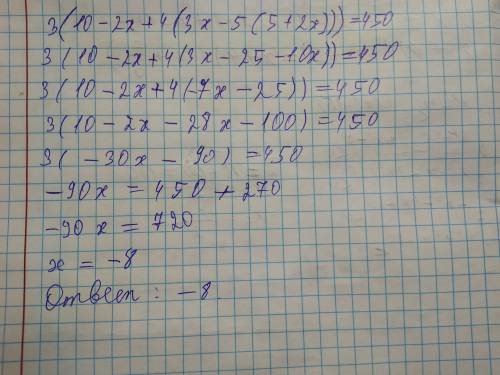 3(10-2x+4(3x-5(5+2x)))=450
3(10-2x+4(3x-25-10x))=450
3(10-2x+4(-7x-25))=450
3(10-2x-28x-100)=450
3(-30x-90)=450
-90x=450+270
-90x=720
x=-8
Ответ: -8